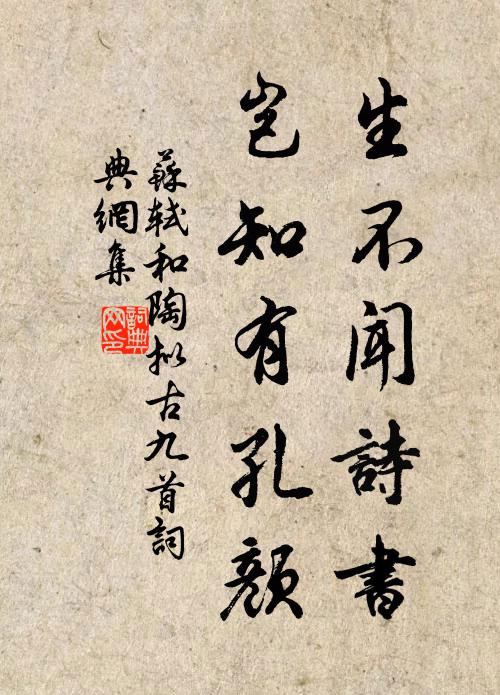 生不聞詩書
豈知有孔顏
蘇軾和陶擬古九首詞
典網集
詞典網印